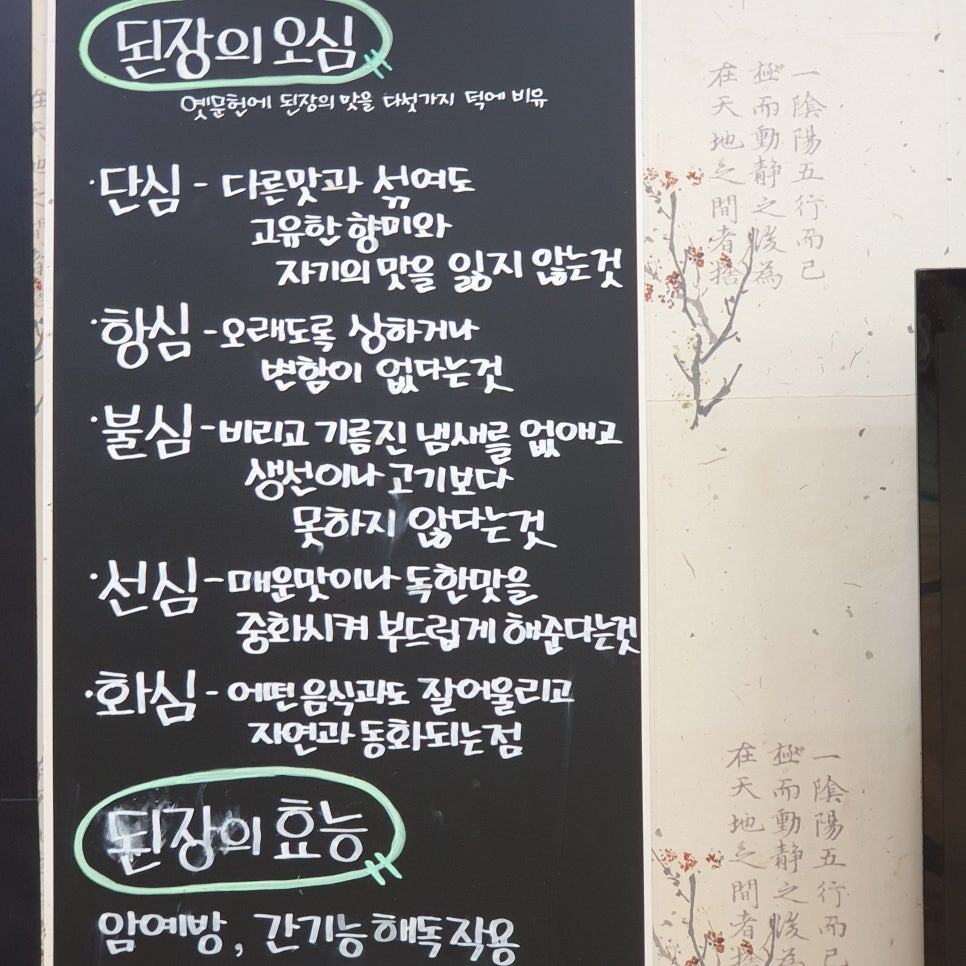 된장의 오심
옛문헌에 된장의 맛을 다섯가지 덕에 비유
·단심 - 다른맛과 섞여도
고유한 향미와
자기의 맛을 잃지 않는것
·항심 - 오래도록 상하거나
변함이 없다는것
·불심 - 비리고 기름진 냄새를 없애고
생선이나 고기보다
못하지 않다는것
·선심 - 매운맛이나 독한맛을
중화시켜 부드럽게 해준다는것
·화심 - 어떤 음식과도 잘어울리고
자연과 동화되는점
된장의 효능
암예방, 간기능해독작용
一陰陽五行而已
極而動靜之後為
在天地之間者
一陰陽五行而已
極而動靜之後為
在天地之間者